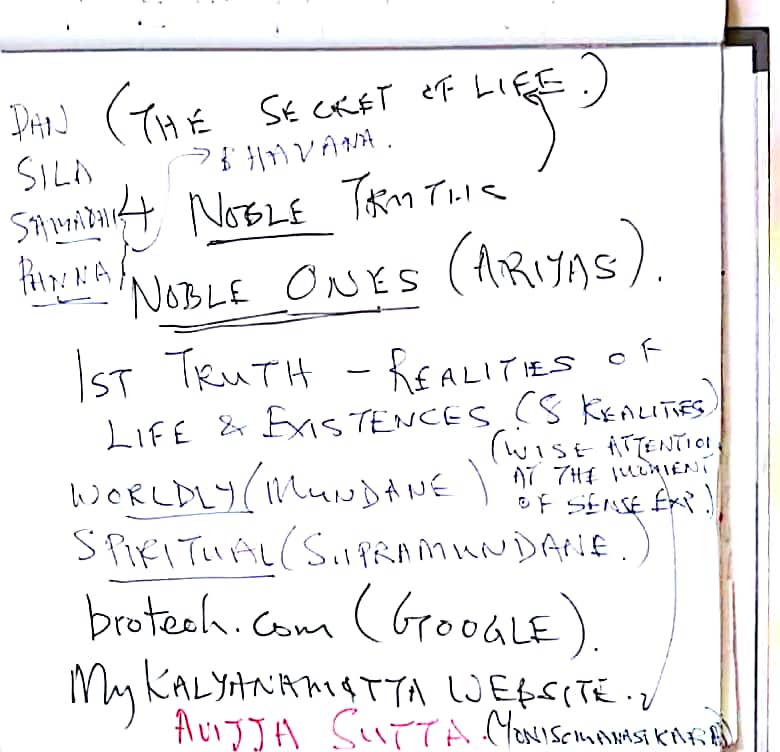 DAN (THE SECRET OF LIFE.)
SILA → BHAVANA.
SAMADHI 4 NOBLE TRUTHS
PANNA } NOBLE ONES (ARIYAS).
1ST TRUTH – REALITIES OF
LIFE & EXISTENCES (8 REALITIES)
(WISE ATTENTION
WORLDLY (MUNDANE) AT THE MOMENT
OF SENSE EXP.)
SPIRITUAL (SUPRAMUNDANE.)
broteoh.com (GOOGLE).
My KALYANAMITTA WEBSITE.
AVIJJA SUTTA. (YONISOMANASIKARA)